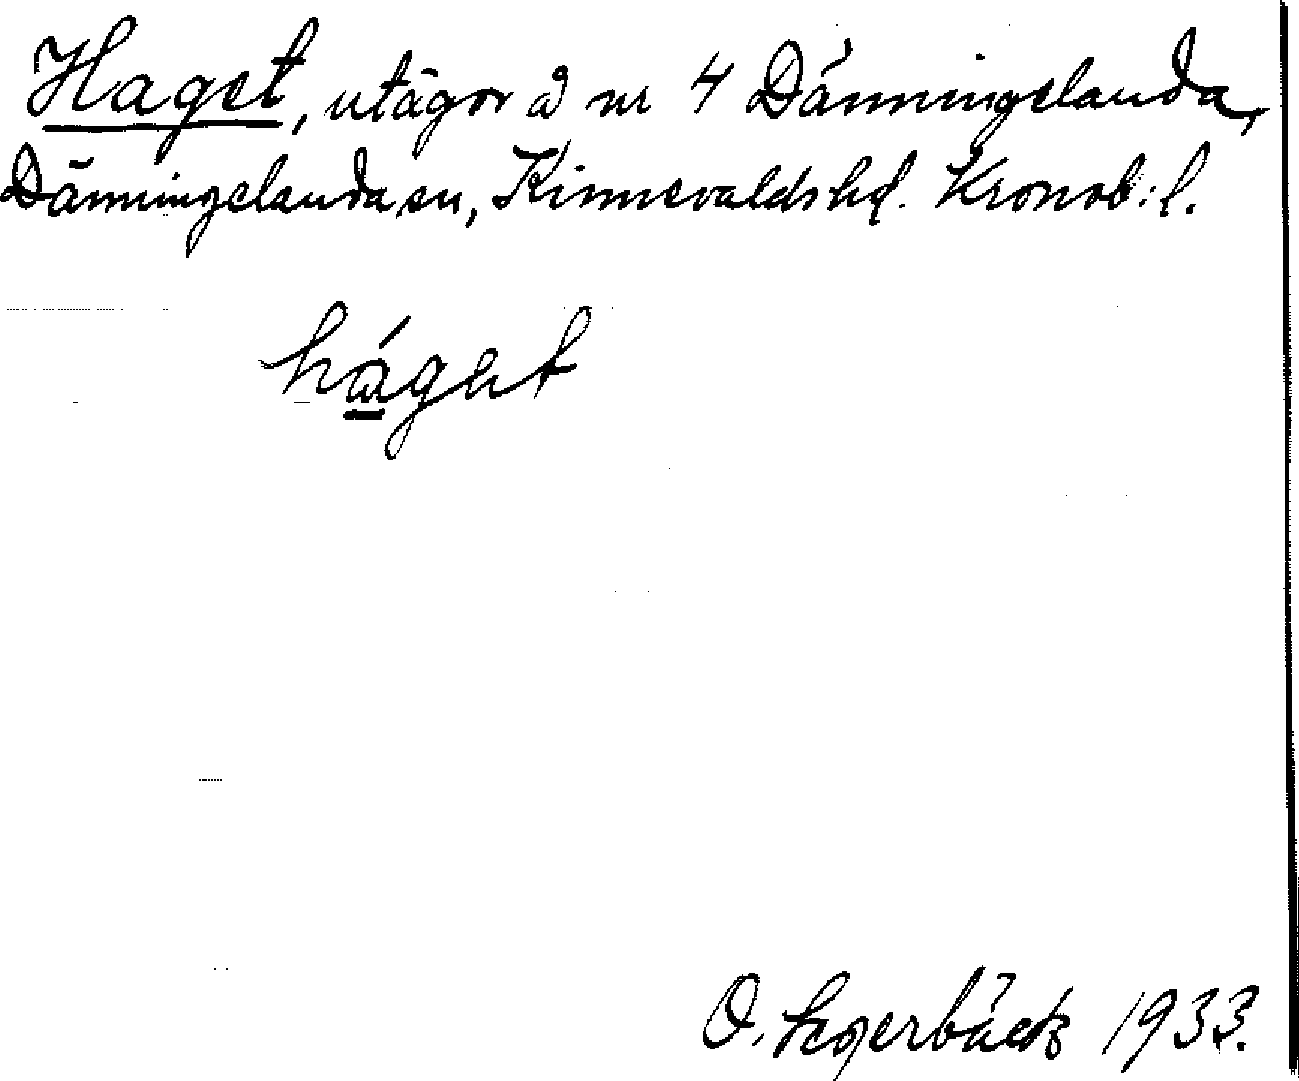 Haget, utägor å nr 4 Dänningelanda,
Dänningelanda sn, Kinnevalds hd. Kronob:l.
hágət
O. Segerbäck 1933.